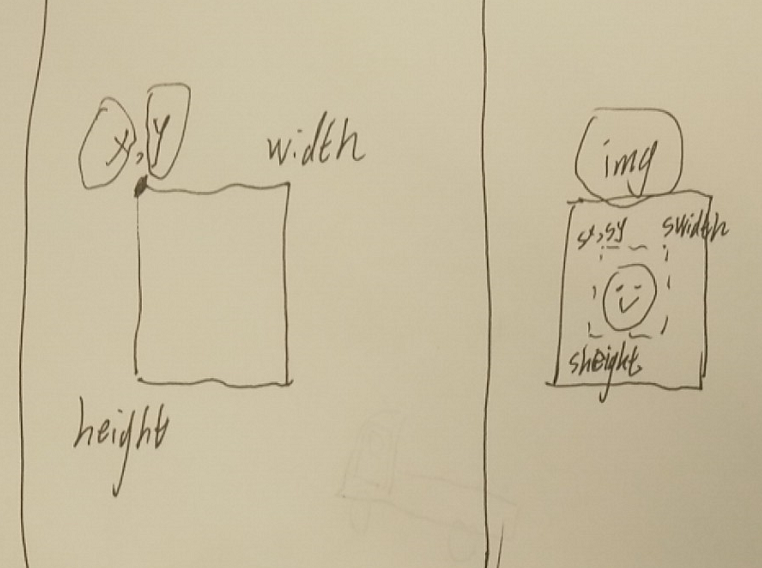 x, y
width
height
img
sx, sy
swidth
sheight